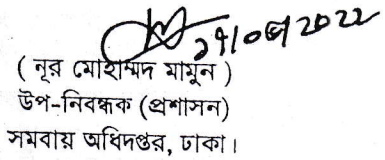 ২৭/০৬/2022
( নূর মোহাম্মদ মামুন )
উপ-নিবন্ধক (প্রশাসন)
সমবায় অধিদপ্তর, ঢাকা।